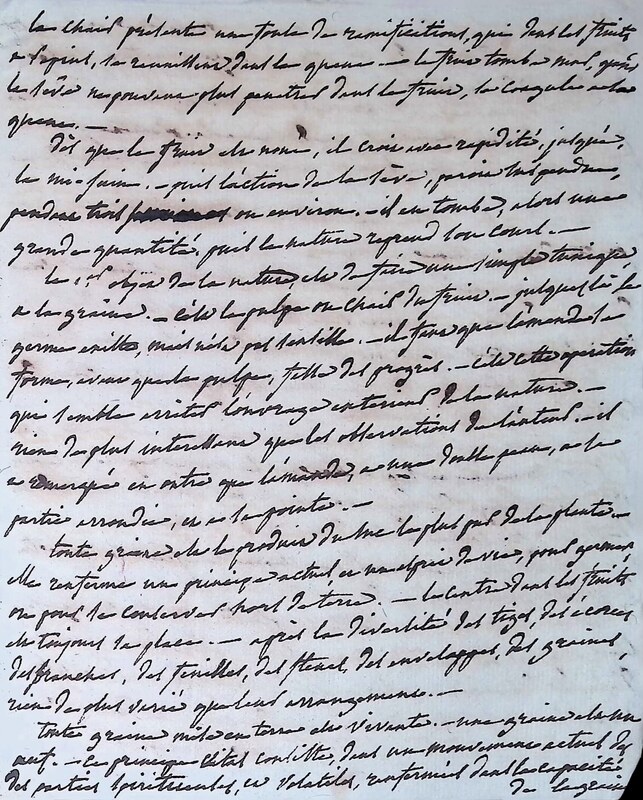 la chair présente une foule de ramifications, qui dans les fruits
a pepins, se reunissent dans la queue — le fruit tombe mal, quand
la sève ne pouvant plus penetrer dans le fruit, se coagule a la
queue. —
Dès que le fruit est noué, il croit avec rapidité, jusques,
la mi-juin. — puis l'action de la sève, paroit suspendue,
pendant trois ou environ. — il en tombe, alors une
grande quantité, puis la nature reprend son cours. —
le 1er objet de la nature, est de faire une simple tunique
a la graine. — c'est la pulpe ou chair du fruit. — jusques là le
germe existe, mais n'est pas sensible. — il faut que l'amande se
forme, avant que la pulpe, fasse des progrès. — c'est cette operation
qui semble arrêter l'ouvrage exterieur de la nature. —
rien de plus interessant que les observations de l'auteur. — il
a remarqué en outre que l'amande, a une double peau, a la
partie arrondie, et a la pointe. —
toute graine est le produit du suc le plus pur de la plante. —
elle renferme un principe actuel, et une espèce de vie, pour germer
ou pour se conserver hors de terre — le centre dans les fruits
est toujours sa place. — après la diversité des tiges, des écorces
des branches, des feuilles, des fleurs, des enveloppes, des graines,
rien de plus varié que leur arrangement. —
toute graine mise en terre est vivante. — une graine est un
œuf. — ce principe vital consiste, dans un mouvement actuel des
des parties spiritueuses, et volatiles, renfermées dans la capacité
de la graine